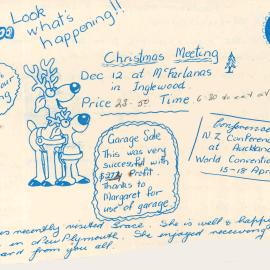 Look
what's
happening!!
Christmas Meeting
Dec 12 at McFarlanas
in Inglewood.
Price 23-50 Time. 6-30 to eat at
Garage Sale
This was very
successful with
Profit.
Thanks to
Margaret for
use of garage.
Conferences
N.Z Conferen
at Auckland
World Convention
15-18 Apri
recently visited Grace. She is well & happ
in New Plymouth. She enjoyed receiving
ard from you all.